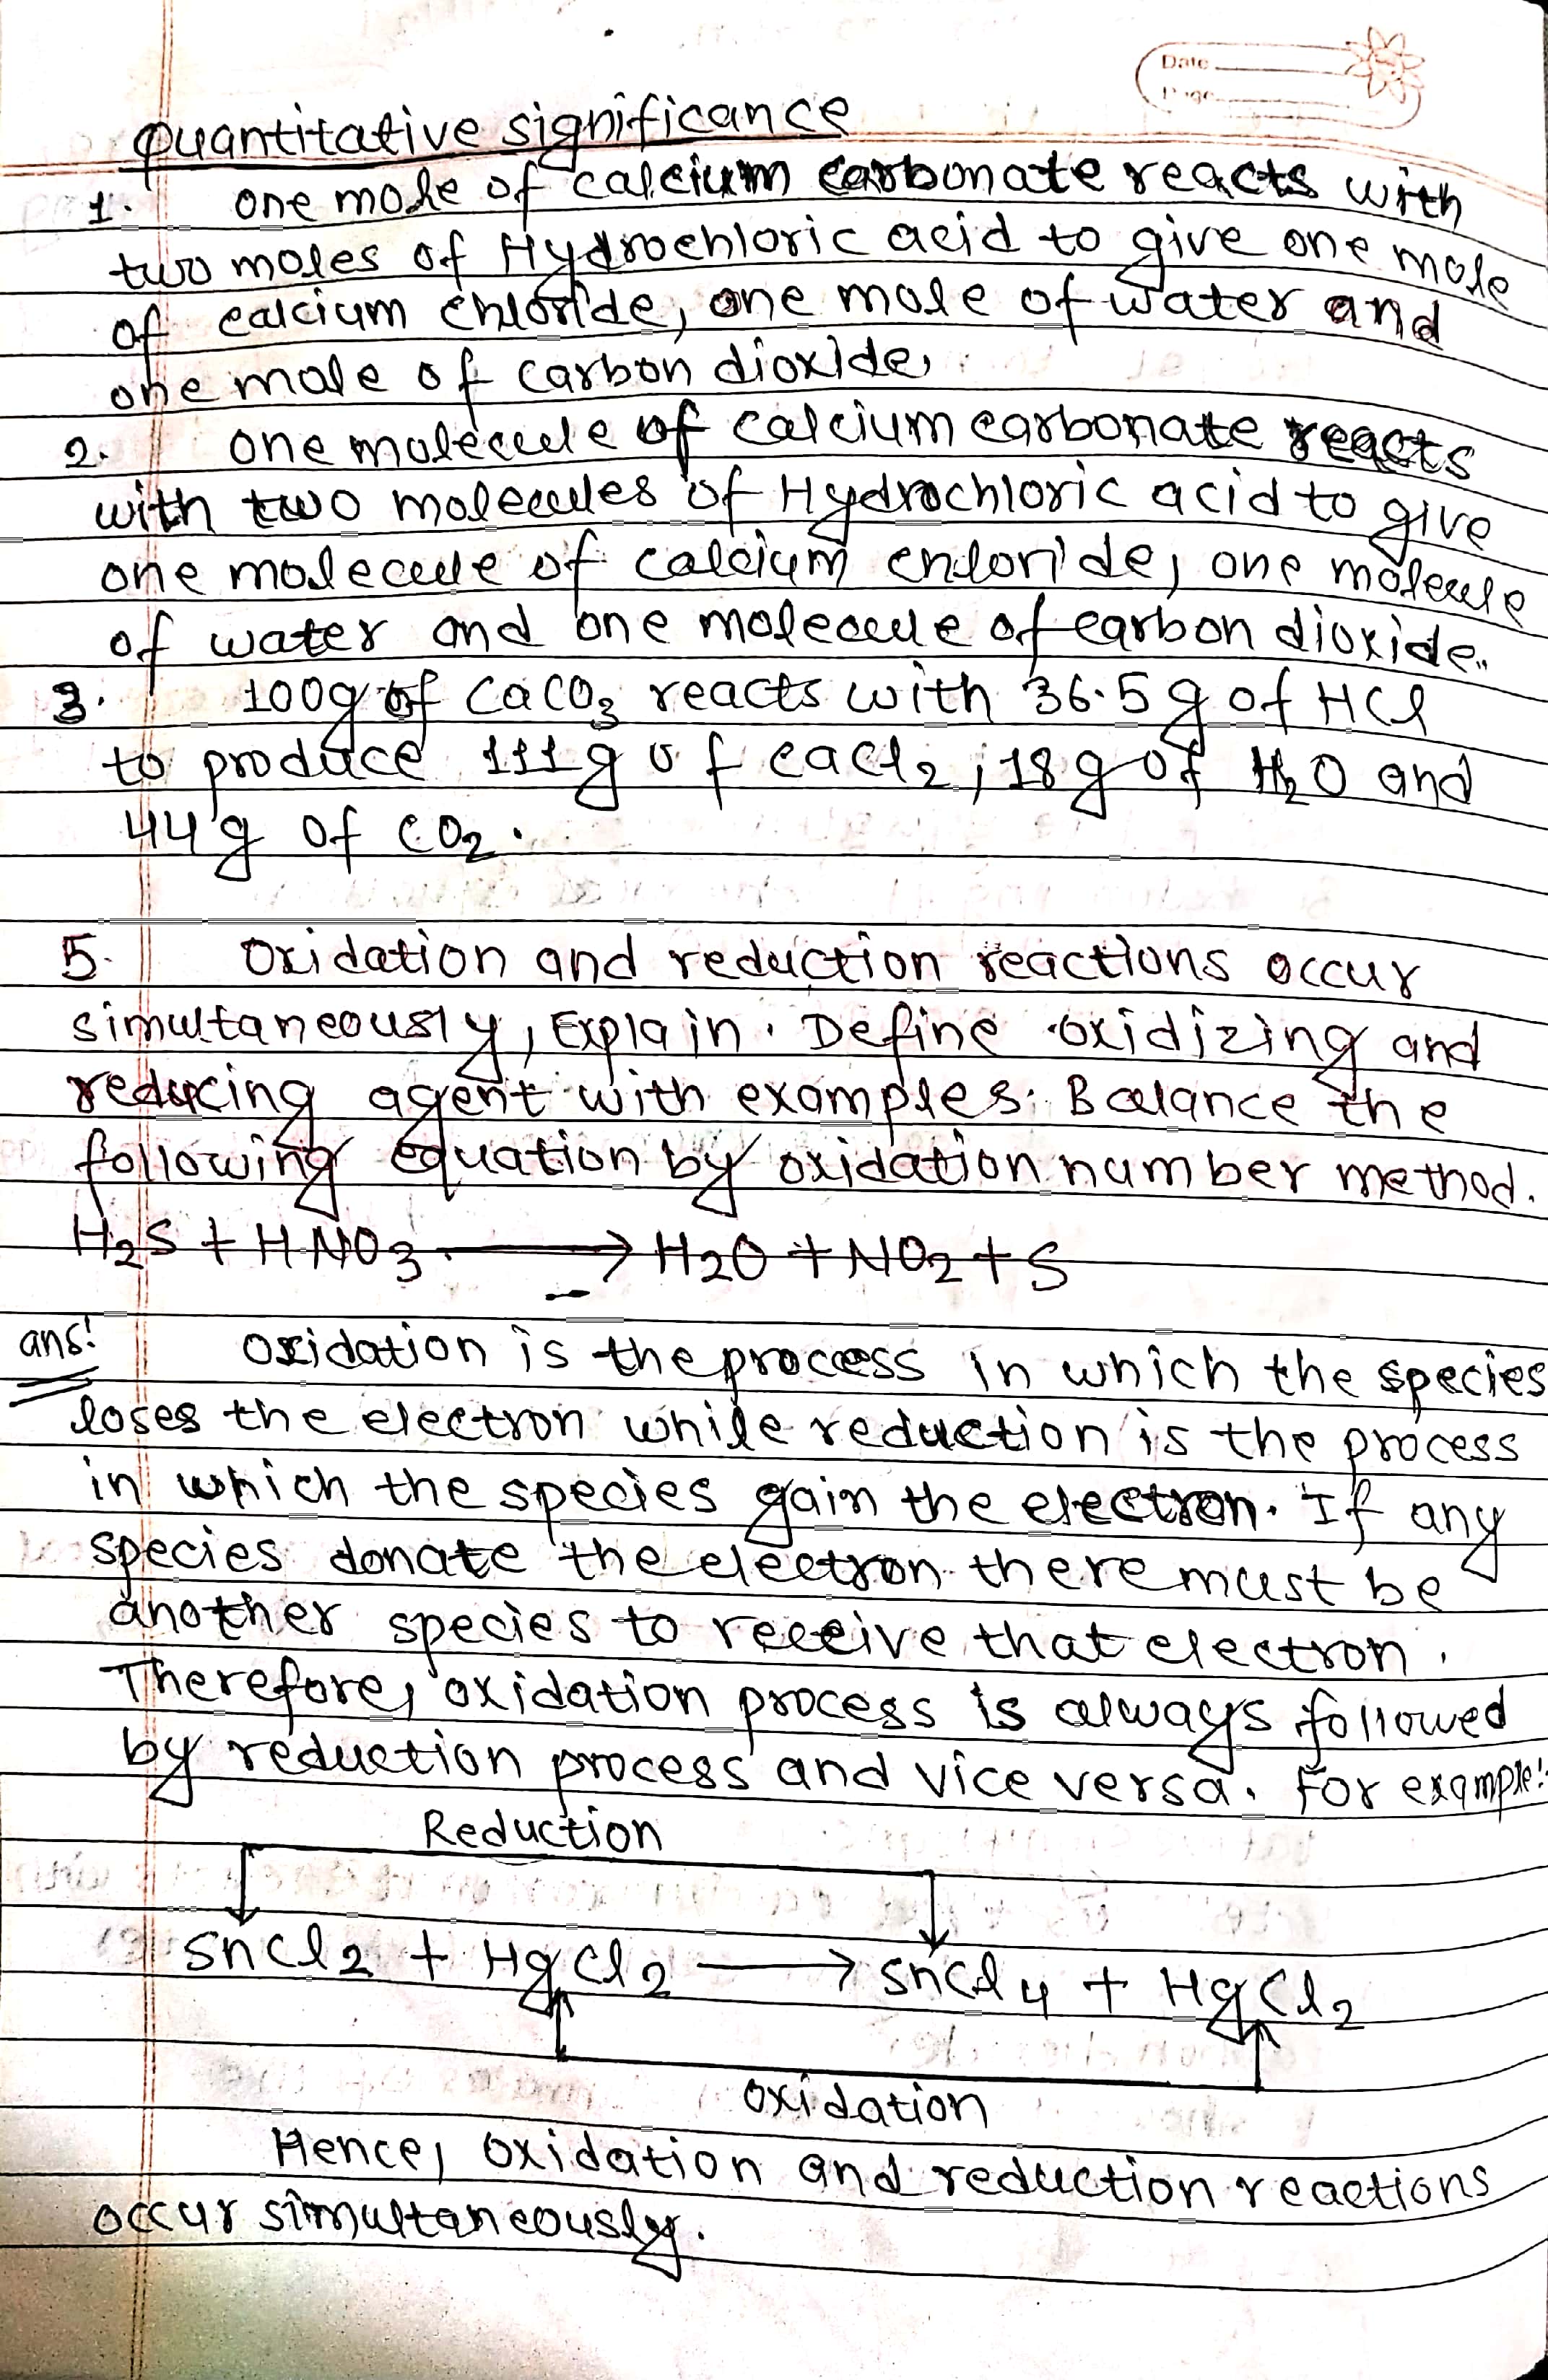 Date
Page
Quantitative significance
1. one mole of calcium carbonate reacts with
two moles of Hydrochloric acid to give one mole
of calcium chloride, one mole of water and
one mole of carbon dioxide.
2. one molecule of calcium carbonate reacts
with two molecules of Hydrochloric acid to give
one molecule of calcium chloride, one molecule
of water and one molecule of carbon dioxide.
3. 100g of CaCO3 reacts with 36.5 g of HCl
to produce 111g of CaCl2, 18g of H2O and
44 g of CO2.
5. Oxidation and reduction reactions occur
simultaneously, Explain. Define oxidizing and
reducing agent with examples. Balance the
following equation by oxidation number method.
H2S + HNO3 → H2O + NO2 + S
ans: Oxidation is the process in which the species
loses the electron while reduction is the process
in which the species gain the electron. If any
species donate the electron there must be
another species to receive that electron.
Therefore, oxidation process is always followed
by reduction process and vice versa. For example:
Reduction
SnCl2 + HgCl2 → SnCl4 + HgCl2
Oxidation
Hence, oxidation and reduction reactions
occur simultaneously.